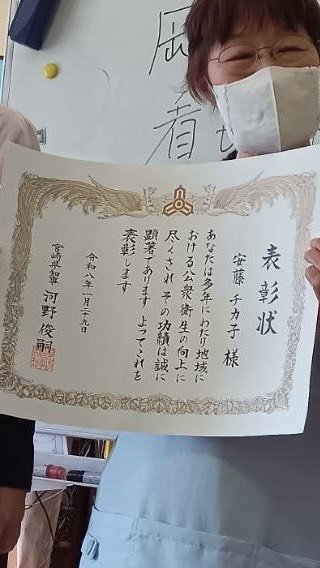 表彰状
安藤 チカ子 様
あなたは多年にわたり地域に
おける公衆衛生の向上に
尽くされ その功績は誠に
顕著であります よってこれを
表彰します
令和八年一月二十九日
宮崎県知事 河野 俊嗣
者